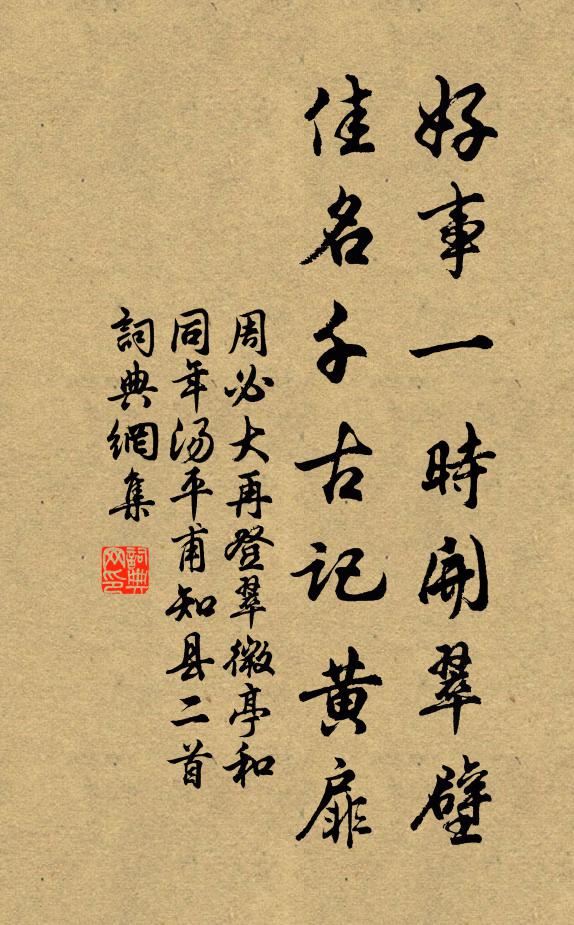 好事一時開翠壁
佳名千古記黄扉
周必大再登翠微亭和
同年汤平甫知县二首
詞典網集
詞典网印